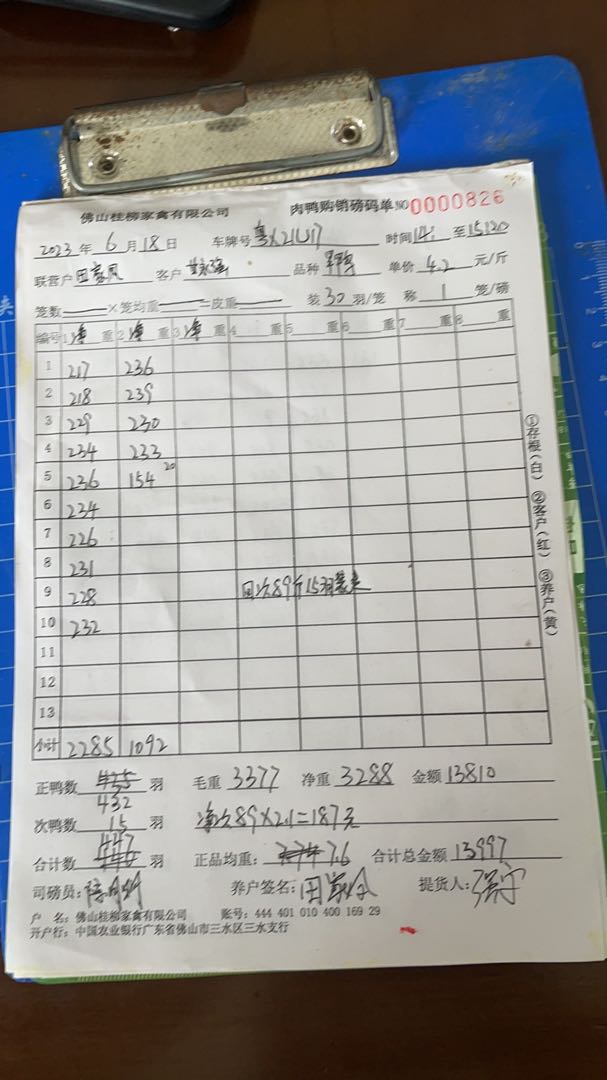 佛山桂柳家禽有限公司 肉鸭购销磅码单 NO 0000826
2023 年 6 月 18 日 车牌号 粤X21U17 时间 14: 至 15:20
联营户 田 凤 客户 品种 单价 4.2 元/斤
笼数 ×笼均重 =皮重 装 30 羽/笼 称 1 笼/磅
编号 1 净 重 2 净 重 3 净 重 4 重 5 重 6 重 7 重 8 重
1 217 236
2 218 239
3 229 230
4 234 233
5 236 154 20
6 234
7 226
8 231
9 228 回次89斤15羽
10 232
11
12
13
小计 2285 1092
正鸭数 435 羽 毛重 3377 净重 3288 金额 13810
432
次鸭数 15 羽 净次89×2.1=187元
447
合计数 羽 正品均重: 7.6 合计总金额 13997
司磅员: 养户签名: 田 提货人:
户 名: 佛山桂柳家禽有限公司 账号: 444 401 010 400 169 29
开户行: 中国农业银行广东省佛山市三水区三水支行
①存根(白) ②客户(红) ③养户(黄)